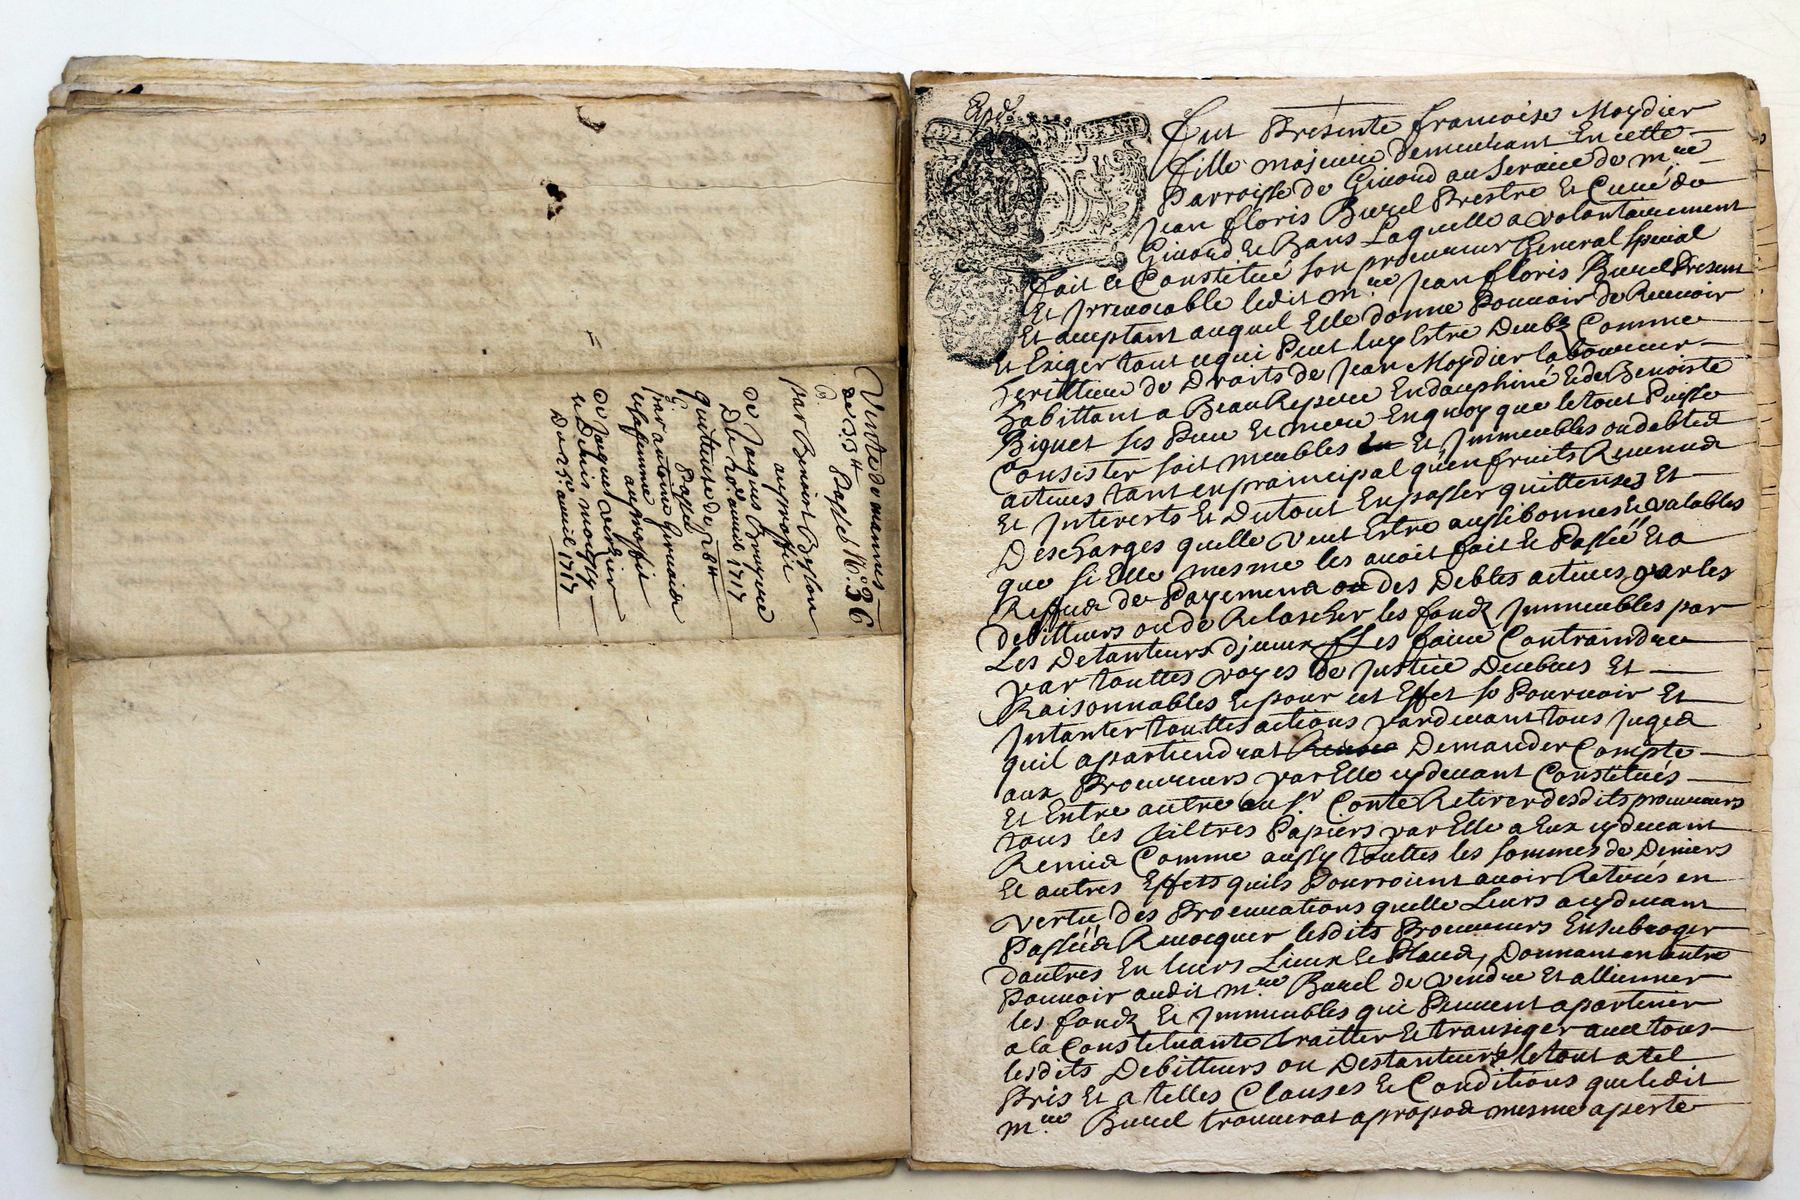 Vente de mannus
de 33# Passé N.° 36
par Benoist Besson
au proffit
de Jaques Bruyere
Du 20e avril 1717
quittense de 26#
Passé
par antoine
et sa femme
au proffit
de Jaque Verdier
et Denis
Du 25e avril 1717
Expé
Fut Présente francoise Moydier
fille majeure demeurant En cette
Parroisse de Givord au Service de mre
Jean floris Burel Prestre Et Curé de
Givord Et Bans Laquelle a volontairement
fait Et Constitué son procureur General Special
Et Irrevocable ledit mre Jean floris Burel Present
Et aceptant auquel Elle donne Pouvoir de Recevoir
et Exiger tout ce qui Peut luy Estre Deub Comme
heritiere de Droits de Jean Moydier laboureur
habittant a Beau Repaire En dauphiné Et de Benoiste
Biguet ses Pere Et mere En quoy que le tout Puisse
Consister soit meubles Et Immeubles ou debtes
actives tant en prainicipal qu'en fruits Revenus
Et Interests Et Du tout En passer quittenses Et
Descharges quelle veut Estre aussi bonnes Et valables
que si Elle mesme les avoit fait Et Passée Et a
Reffus de Payement ou des Debtes actives par les
debitteurs ou de Relascher les fondz Immeubles par
Les Detanteurs d'jceux Les faire Contraindre
par touttes voyes de Justice Deubues Et
Raisonnables Et pour cet Effet se Pourvoir Et
Intanter touttes actions pardevant tous Juges
quil apartiendrat Demander Compte
aux Procureurs par Elle cydevant Constitués
Et Entre autre au Sr Conte Retirer desdits procureurs
tous les tiltres Papiers par Elle a Eux cydevant
Remis Comme aussy touttes les sommes de Deniers
Et autres Effets quils Pourroient avoir Retirés en
vertu des Procurations quelle Leurs a cydevant
Passées Revocquer lesdits Procureurs En subroger
dautres En leurs Lieux Et Places, Donnant en outre
Pouvoir audit mre Burel de vendre Et allienner
les fondz Et Immeubles qui Peuvent apartenir
a la Constetuante traitter Et transiger avec tous
lesdits Debitteurs ou Destanteurs le tout a tel
Pris Et a telles Clauses Et Conditions que ledit
mre Burel trouverat a propos mesme a perte